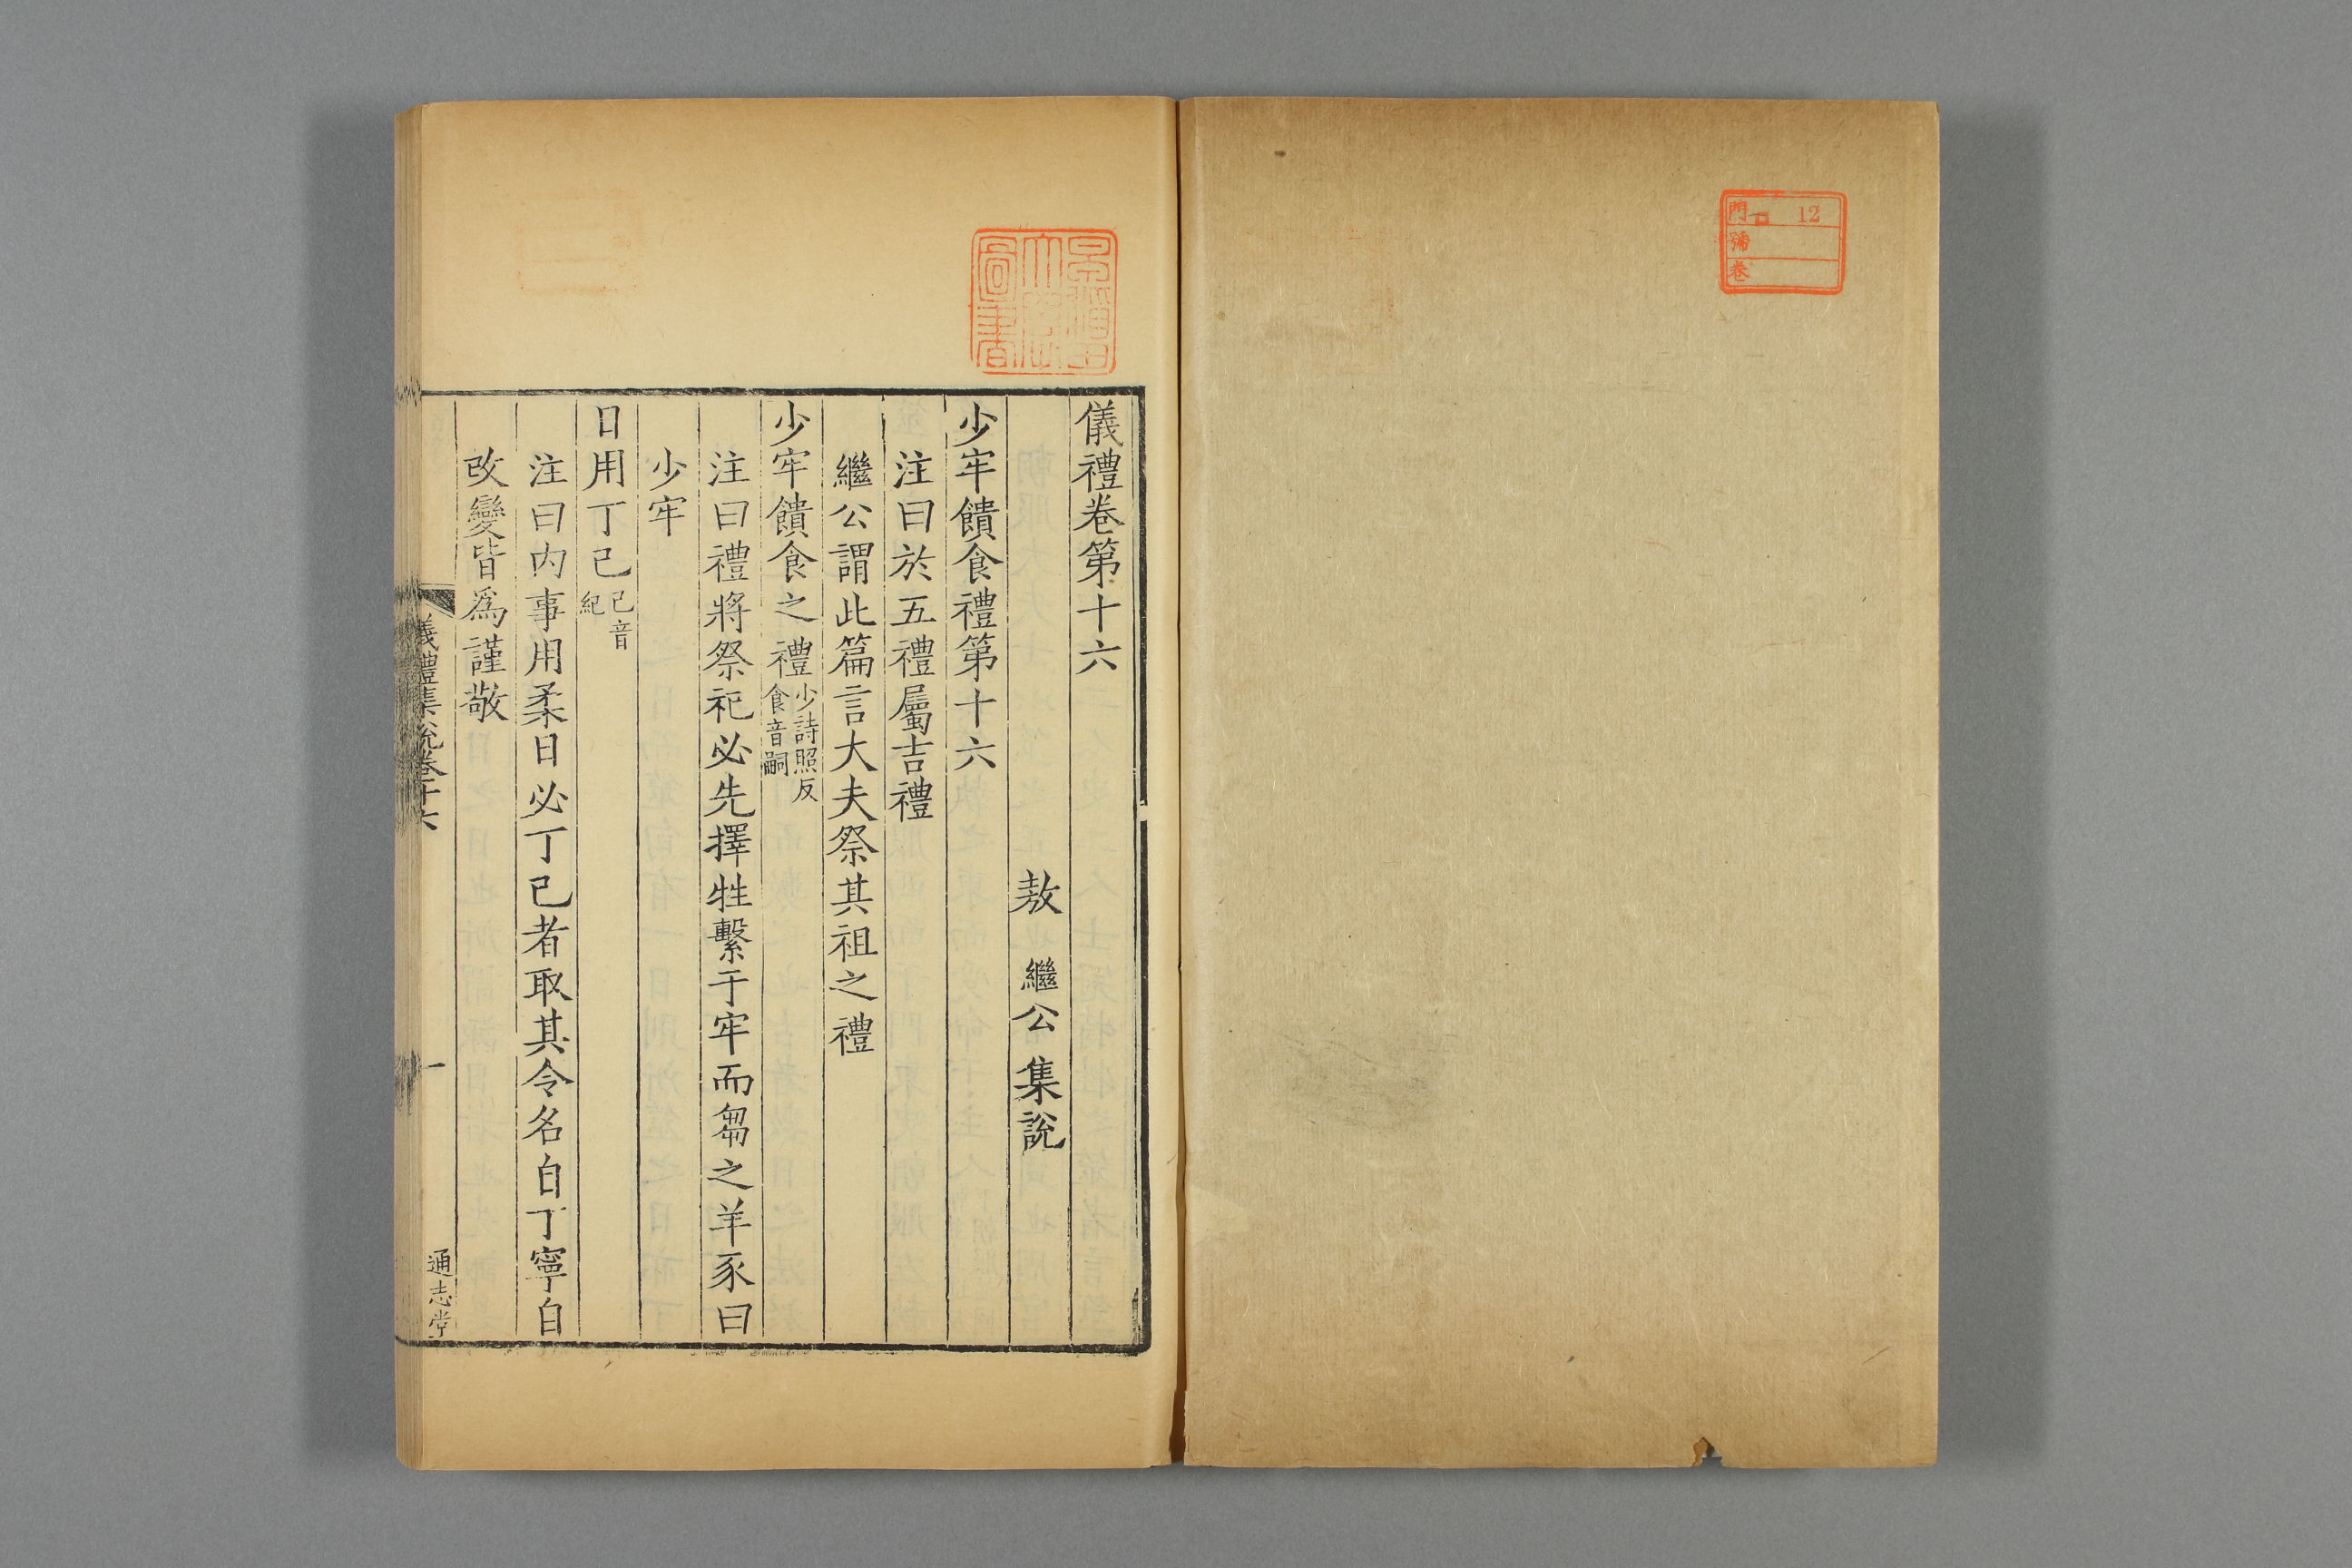 門 12
號
卷
儀禮卷第十六
敖 繼公 集說
少牢饋食禮第十六
注曰於五禮屬吉禮
繼公謂此篇言大夫祭其祖之禮
少牢饋食之禮少詩照反食音嗣
注曰禮將祭祀必先擇牲繫于牢而芻之羊豕曰
少牢
日用丁己己音紀
注曰內事用柔日必丁己者取其令名自丁寧自
改變皆爲謹敬
儀禮集說卷十六
一
通志堂